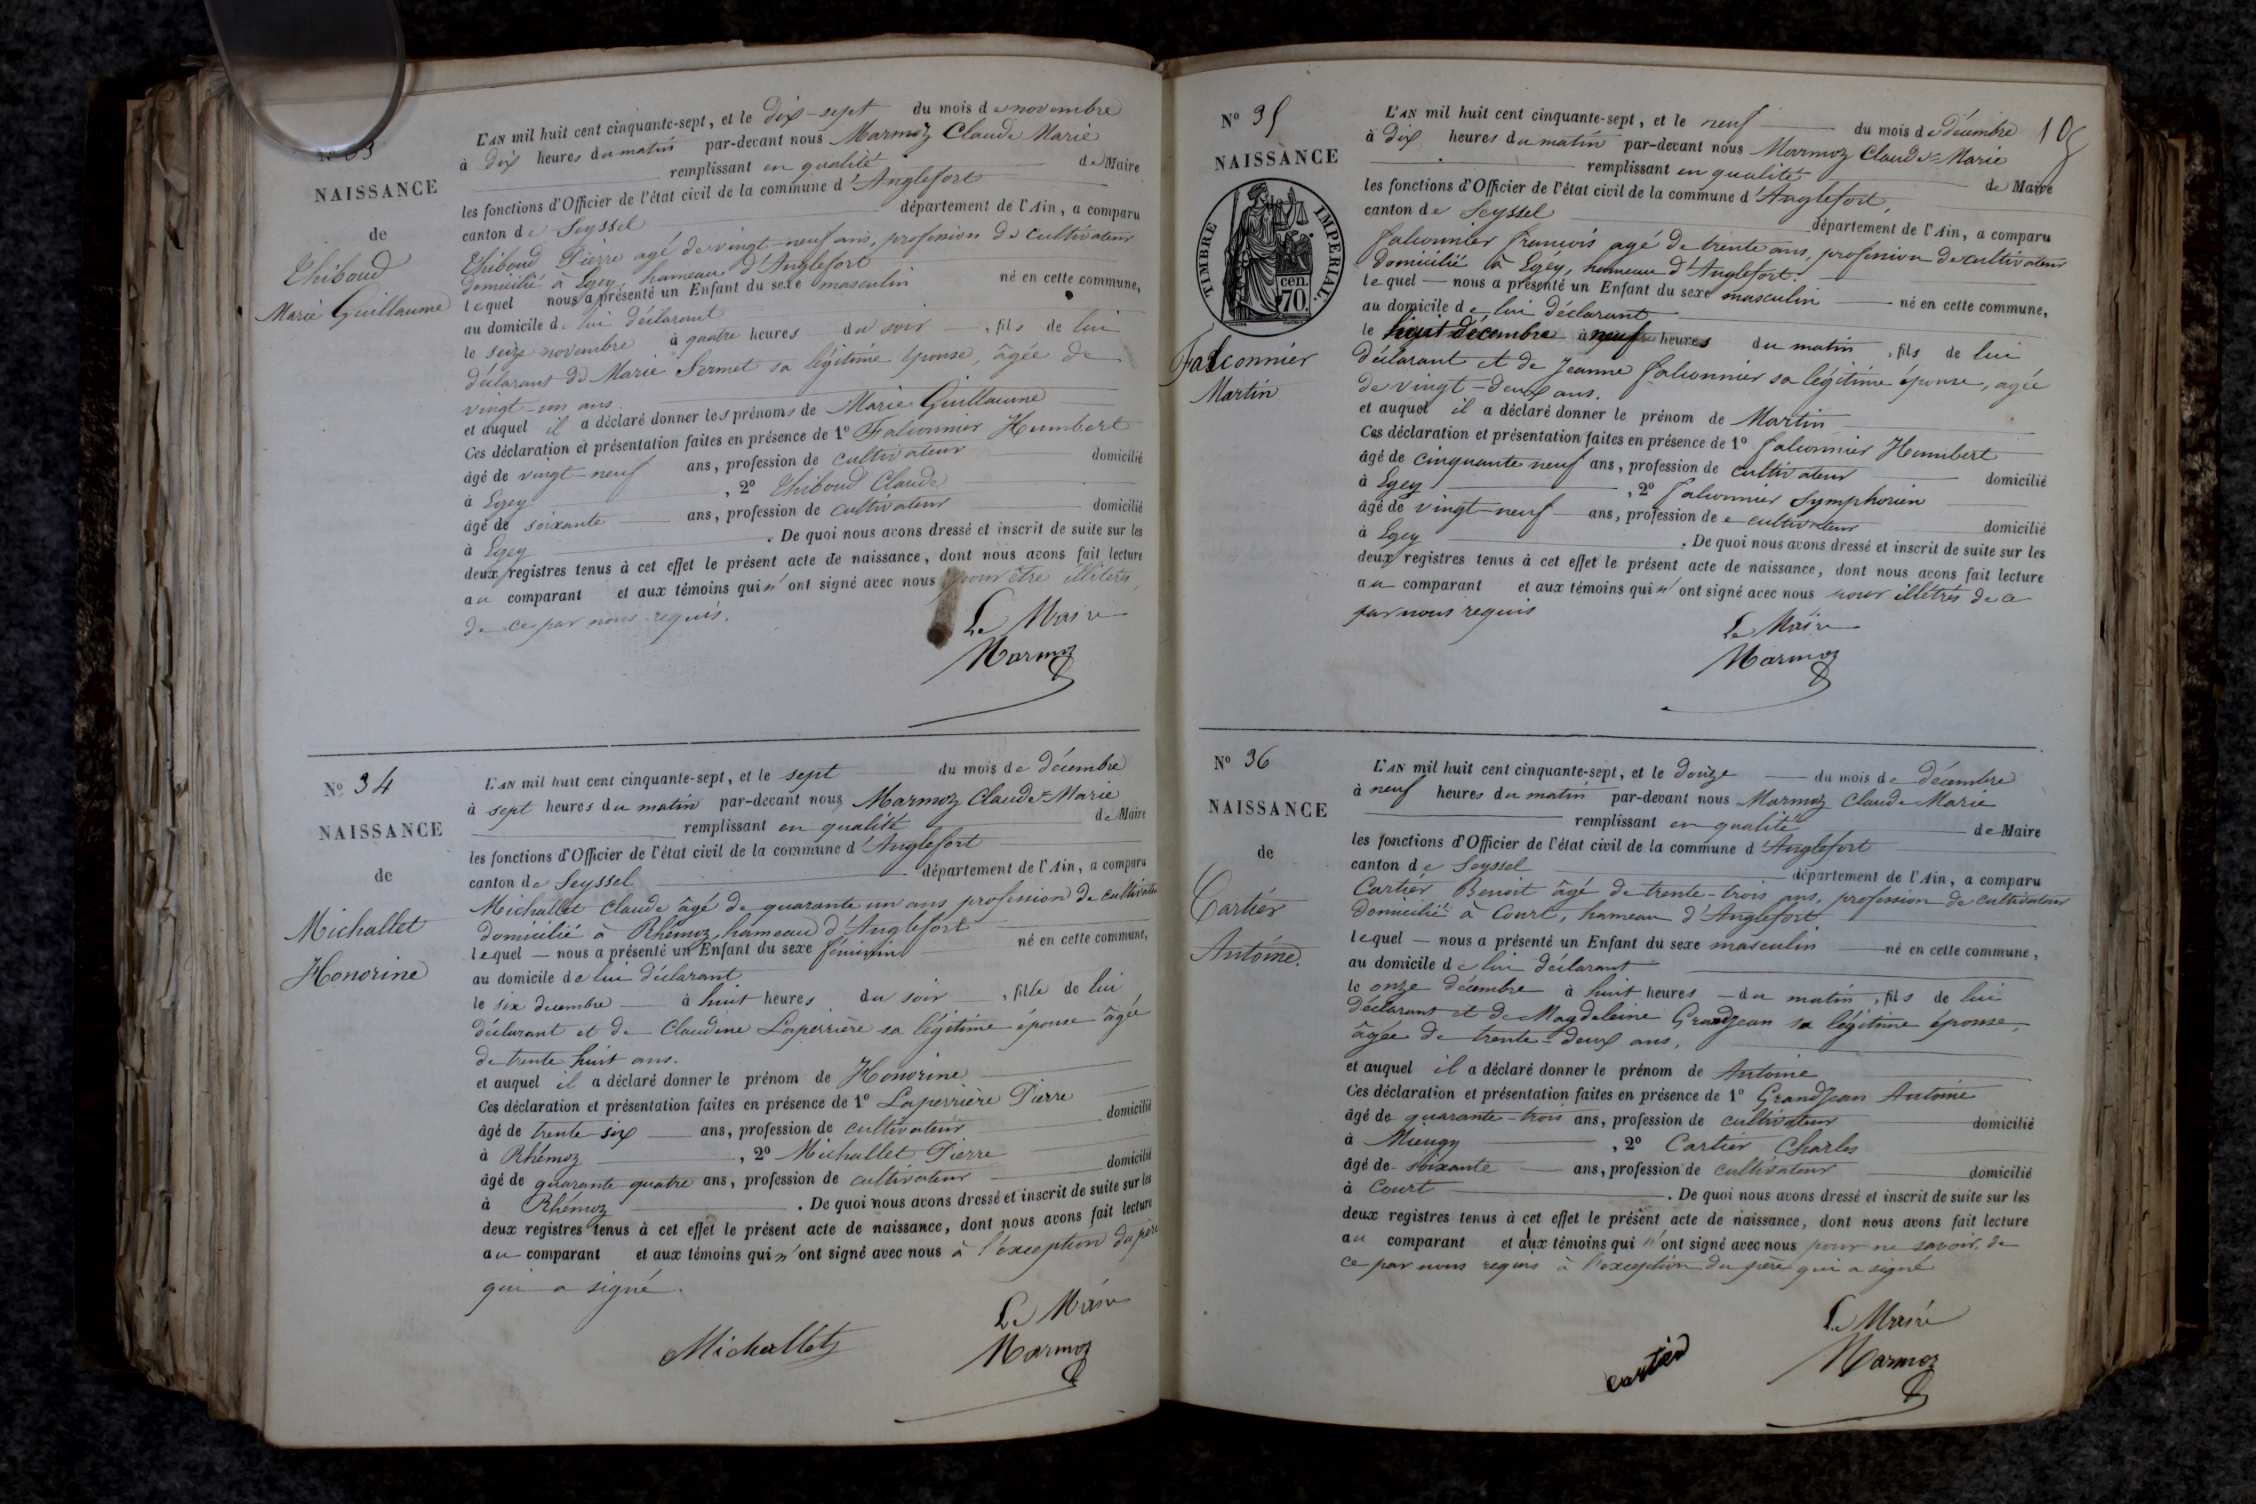 N° 33
NAISSANCE
de
Thiboud
Marie Guillaume
L'AN mil huit cent cinquante-sept, et le dix-sept du mois de novembre
à dix heures du matin par-devant nous Marmoz Claude Marie
remplissant en qualité de Maire
les fonctions d'Officier de l'état civil de la commune d'Anglefort
canton de Seyssel département de l'Ain, a comparu
Thiboud Pierre agé de vingt-neuf ans, profession de cultivateur
domicilié à Egey, hameau d'Anglefort
lequel nous a présenté un Enfant du sexe masculin né en cette commune,
au domicile de lui déclarant
le seize novembre à quatre heures du soir, fils de lui
déclarant de Marie Sermet sa légitime épouse, âgée de
vingt-un ans.
et auquel il a déclaré donner les prénoms de Marie Guillaume
Ces déclaration et présentation faites en présence de 1° Falconnier Humbert
âgé de vingt-neuf ans, profession de cultivateur domicilié
à Egey, 2° Thiboud Claude
âgé de soixante ans, profession de cultivateur domicilié
à Egey. De quoi nous avons dressé et inscrit de suite sur les
deux registres tenus à cet effet le présent acte de naissance, dont nous avons fait lecture
au comparant et aux témoins qui n'ont signé avec nous pour être illétérés,
de ce par nous requis.
Le Maire
Marmoz
N° 34
NAISSANCE
de
Michallet
Honorine
L'AN mil huit cent cinquante-sept, et le sept du mois de décembre
à sept heures du matin par-devant nous Marmoz Claude-Marie
remplissant en qualité de Maire
les fonctions d'Officier de l'état civil de la commune d'Anglefort
canton de Seyssel département de l'Ain, a comparu
Michallet Claude âgé de quarante un ans profession de cultivateur
domicilié à Rhémoz, hameau d'Anglefort
lequel — nous a présenté un Enfant du sexe féminin né en cette commune,
au domicile de lui déclarant
le six decembre à huit heures du soir, fille de lui
déclarant et de Claudine Laperrière sa légitime épouse âgée
de trente huit ans.
et auquel il a déclaré donner le prénom de Honorine
Ces déclaration et présentation faites en présence de 1° Laperrière Pierre
âgé de trente six ans, profession de cultivateur domicilié
à Rhémoz, 2° Michallet Pierre
âgé de quarante quatre ans, profession de cultivateur domicilié
à Rhémoz. De quoi nous avons dressé et inscrit de suite sur les
deux registres tenus à cet effet le présent acte de naissance, dont nous avons fait lecture
au comparant et aux témoins qui n'ont signé avec nous à l'exception du père
qui a signé.
Le Maire
Michallet
Marmoz
105
N° 35
NAISSANCE
TIMBRE IMPERIAL.
cen.
70.
Falconnier
Martin
L'AN mil huit cent cinquante-sept, et le neuf du mois de Décembre
à dix heures du matin par-devant nous Marmoz Claude-Marie
remplissant en qualité de Maire
les fonctions d'Officier de l'état civil de la commune d'Anglefort,
canton de Seyssel département de l'Ain, a comparu
Falconnier François agé de trente ans, profession de cultivateur
domicilié à Egéy, hameau d'Anglefort.
lequel — nous a présenté un Enfant du sexe masculin — né en cette commune,
au domicile de lui déclarant
le huit décembre à neuf heures du matin, fils de lui
déclarant et de Jeanne Falconnier sa légitime épouse, agée
de vingt-deux ans.
et auquel il a déclaré donner le prénom de Martin
Ces déclaration et présentation faites en présence de 1° Falconnier Humbert
âgé de cinquante neuf ans, profession de cultivateur domicilié
à Egey, 2° Falconnier Symphorien
âgé de vingt-neuf ans, profession de cultivateur domicilié
à Egey. De quoi nous avons dressé et inscrit de suite sur les
deux registres tenus à cet effet le présent acte de naissance, dont nous avons fait lecture
au comparant et aux témoins qui n'ont signé avec nous pour illétrés de ce
par nous requis
Le Maire
Marmoz
N° 36
NAISSANCE
de
Cartier
Antoine.
L'AN mil huit cent cinquante-sept, et le douze du mois de décembre
à neuf heures du matin par-devant nous Marmoz Claude Marie
remplissant en qualité de Maire
les fonctions d'Officier de l'état civil de la commune d'Anglefort
canton de Seyssel département de l'Ain, a comparu
Cartier Benoit âgé de trente-trois ans, profession de cultivateur
domicilié à Court, hameau d'Anglefort
lequel — nous a présenté un Enfant du sexe masculin — né en cette commune,
au domicile de lui déclarant
le onze décembre à huit heures — du matin, fils de lui
déclarant et de Magdeleine Grandjean sa légitime épouse,
âgée de trente-deux ans,
et auquel il a déclaré donner le prénom de Antoine
Ces déclaration et présentation faites en présence de 1° Grandjean Antoine
âgé de quarante-trois ans, profession de cultivateur domicilié
à Mieugy, 2° Cartier Charles
âgé de soixante ans, profession de cultivateur domicilié
à Court. De quoi nous avons dressé et inscrit de suite sur les
deux registres tenus à cet effet le présent acte de naissance, dont nous avons fait lecture
au comparant et aux témoins qui n'ont signé avec nous pour ne savoir, de
ce par nous requis à l'exception du père qui a signé
Le Maire
cartier
Marmoz